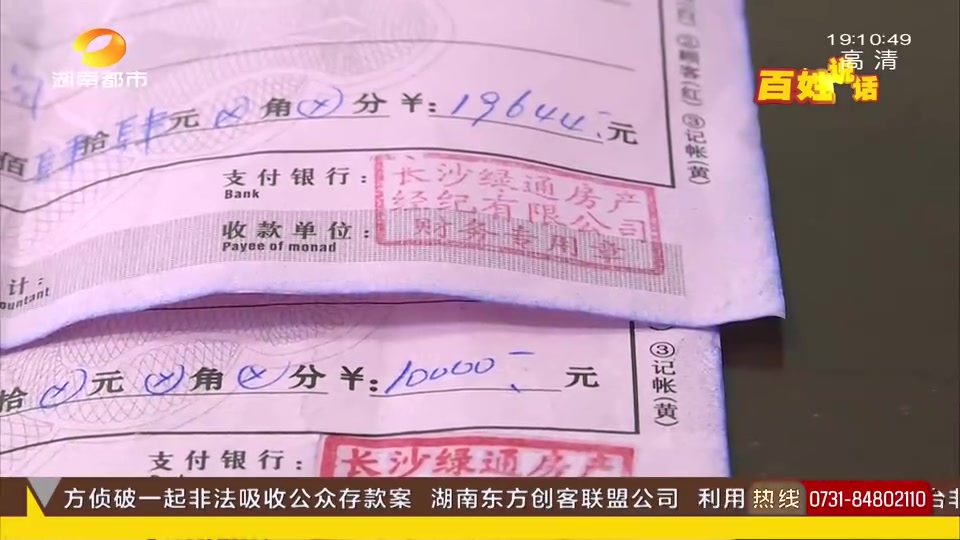 湖南都市
19:10:49
高清
百姓说话
②顾客(红) ③记帐(黄)
佰肆拾肆元ⓧ角ⓧ分¥:19644元
支付银行:
Bank
收款单位:
Payee of monad
长沙绿通房产
经纪有限公司
财务专用章
计:
ountant
拾ⓧ元ⓧ角ⓧ分¥:10000元
③记帐(黄)
支付银行:
长沙绿通房产
方侦破一起非法吸收公众存款案 湖南东方创客联盟公司 利用
热线 0731-84802110
台非